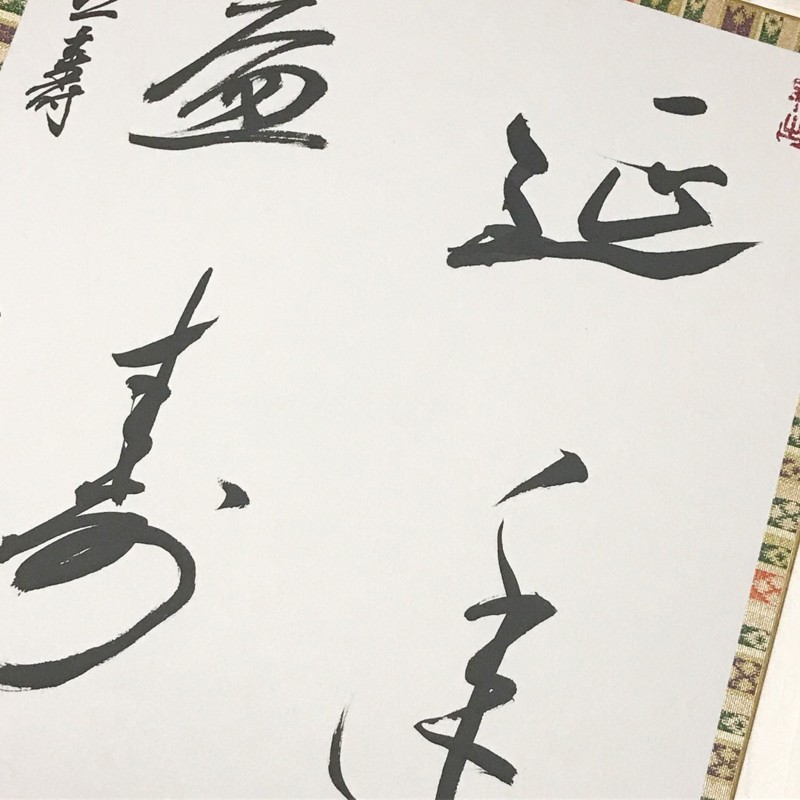 延年
益壽
壽